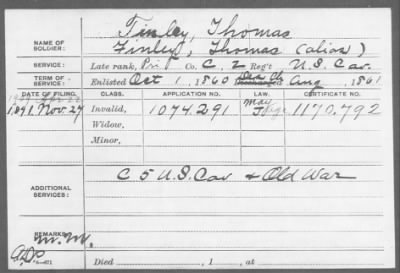 NAME OF SOLDIER: Finley, Thomas
Finley, Thomas (alias)
SERVICE: Late rank, Pvt Co. C, 2 Reg't U.S. Cav.
TERM OF SERVICE: Enlisted Oct 1, 1860 Aug, 1861
DATE OF FILING. CLASS. APPLICATION NO. LAW. CERTIFICATE NO.
1891 Nov. 27 Invalid, 1074.291 1170.792
Widow,
Minor,
ADDITIONAL SERVICES: C 5 U.S. Cav & Old War
REMARKS: M.M.
Died , 1 , at